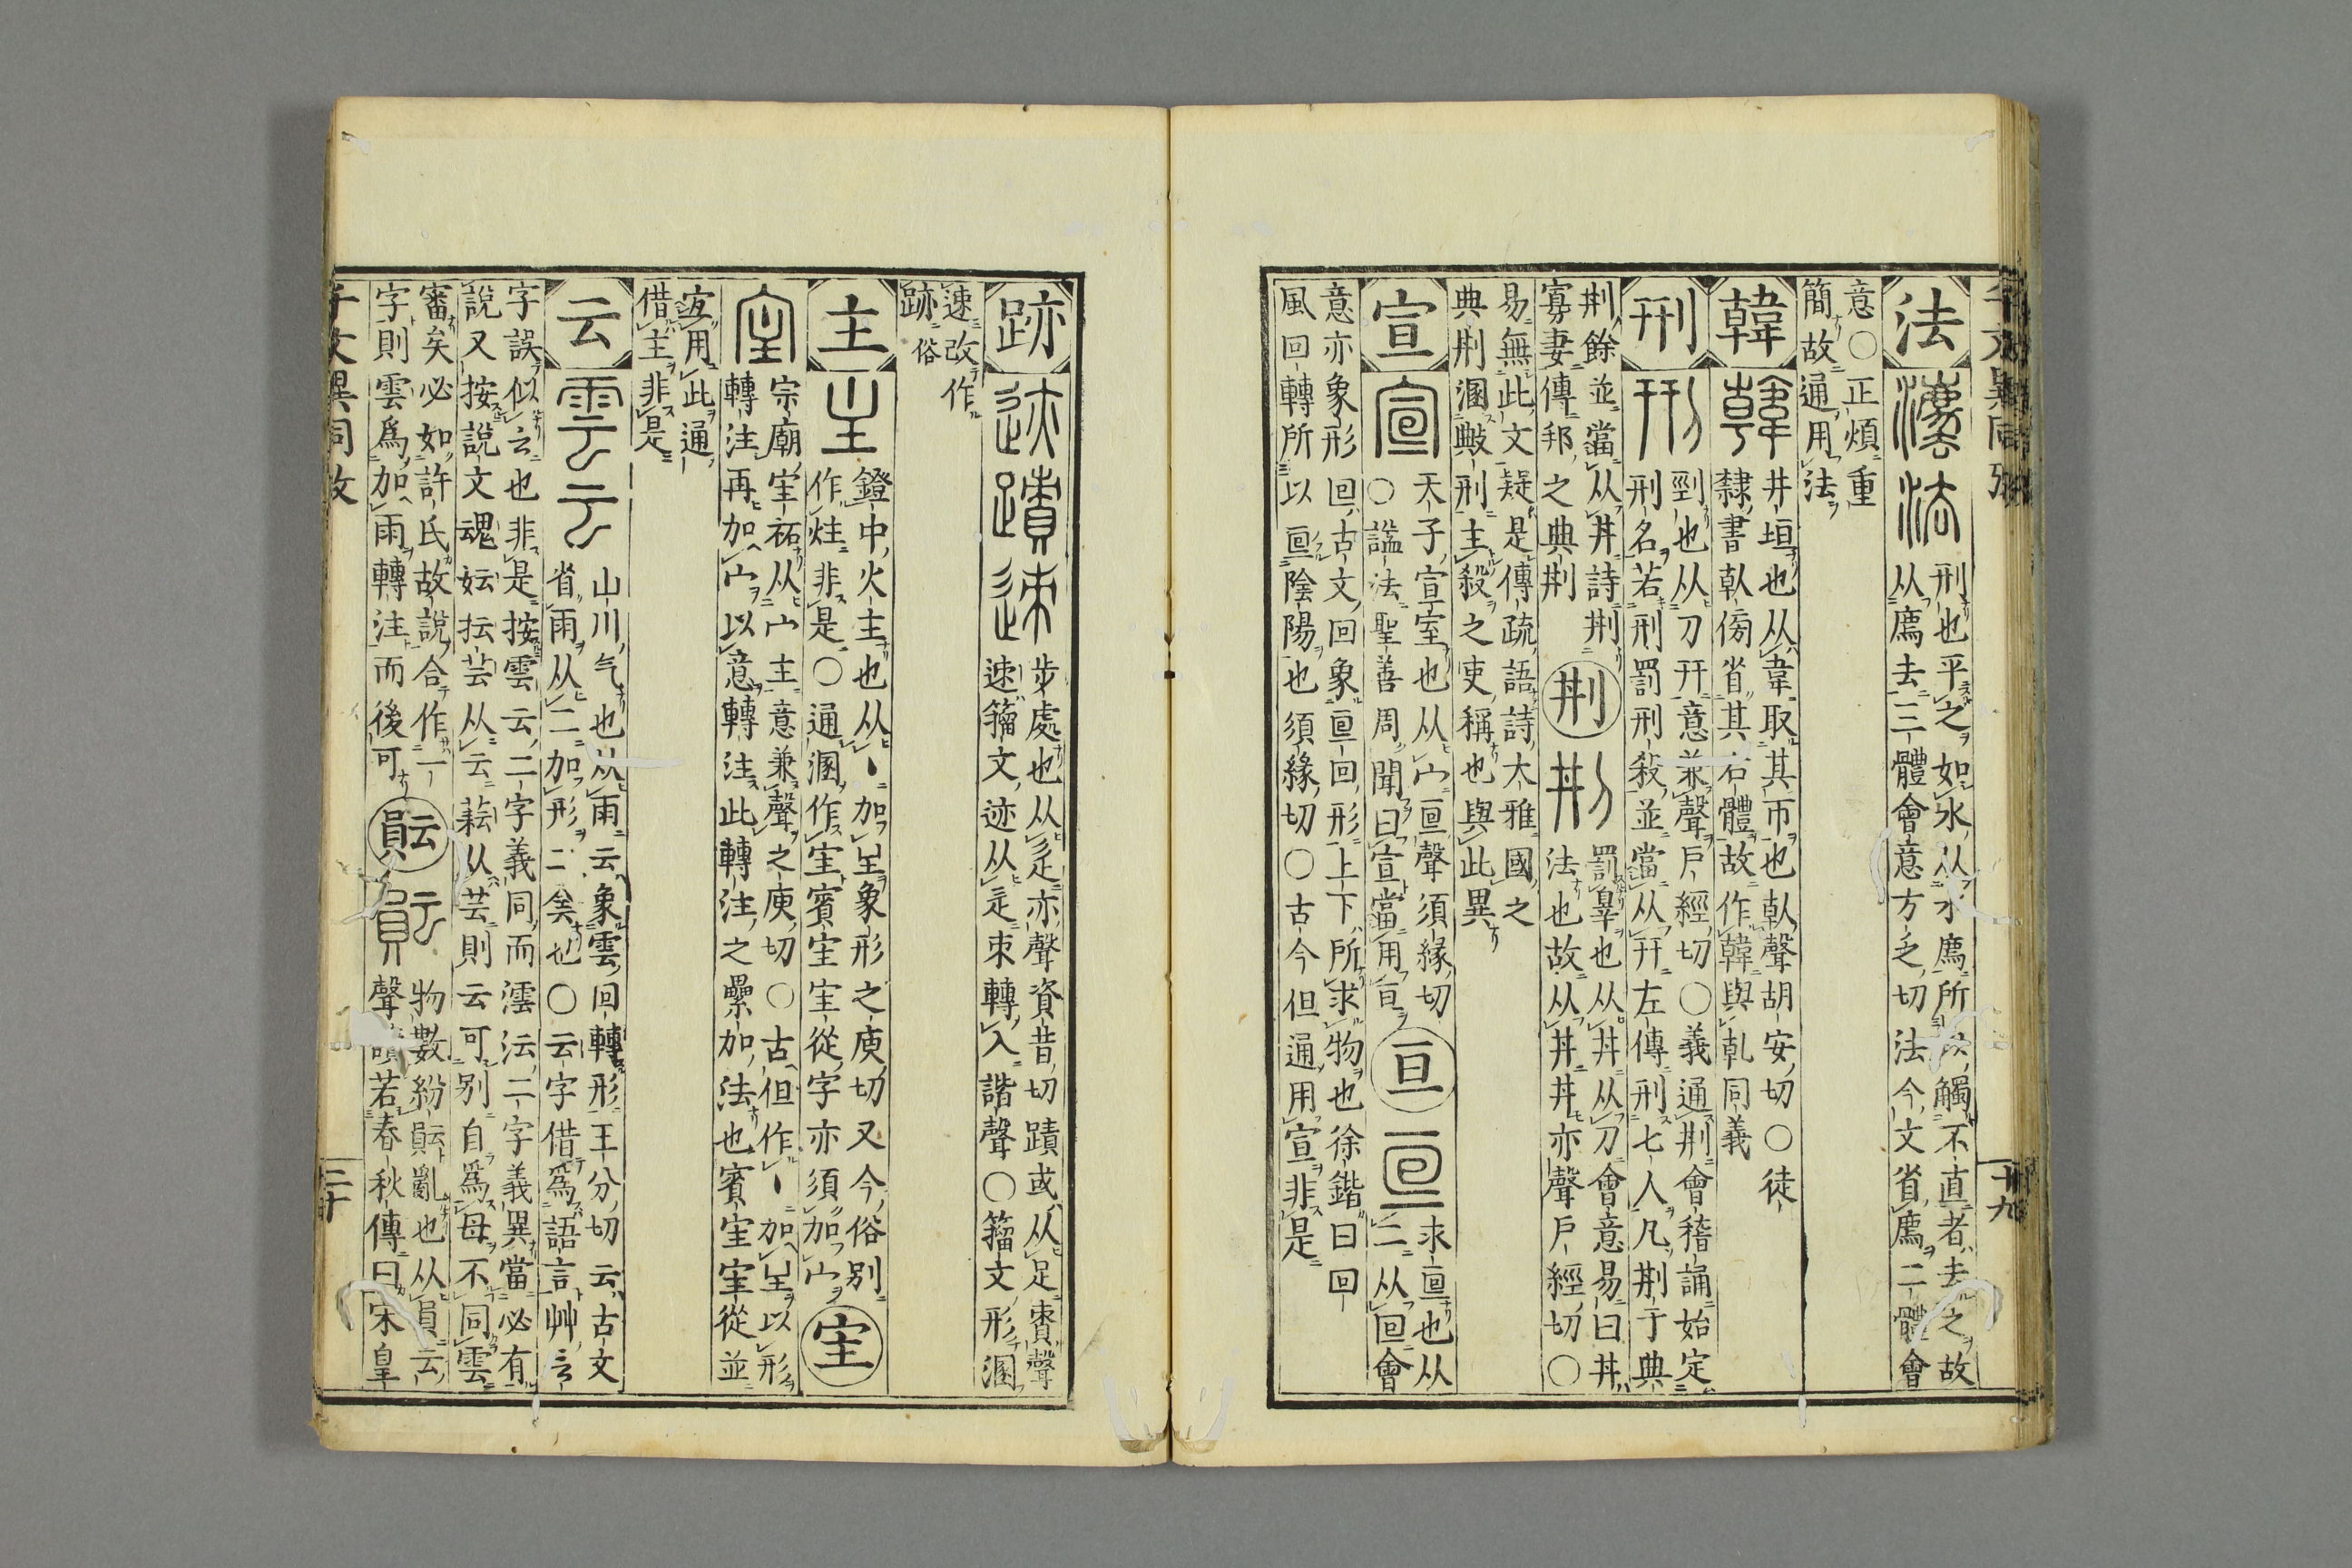 法
刑也平之如水从水廌所以觸不直者去之故
从廌去三體會意方乏切法今文省廌二體會
意〇正煩重
簡故通用法
韓
井垣也从韋取其帀也倝聲胡安切〇徒
隸書倝傍省其右體故作韓與乹同義
刑
剄也从刀幵意兼聲戶經切〇義通𠛬會稽誦始定
刑名若刑罰刑殺並當从幵左傳刑七人凡𠛬于典
𠛬餘並當从丼詩𠛬
寡妻傳邦之典𠛬
𠛬
罰辠也从丼从刀會意易曰丼
法也故从丼丼亦聲戶經切〇
易無此文疑是傳疏語詩大雅國之
典𠛬溷斁刑主殺之吏稱也與此異
宣
天子宣室也从宀亘聲須緣切
〇諡法聖善周聞曰宣當用亘
亘
求亘也从
二从囘會
意亦象形囘古文回象亘回形上下所求物也徐鍇曰回
風回轉所以亘陰陽也須緣切〇古今但通用宣非是
千文異同攷
十九
跡
步處也从辵亦聲資昔切蹟或从足責聲
速籀文迹从辵朿轉入諧聲〇籀文形溷
速改作
跡俗
主
鐙中火主也从丶加𡈼象形之庾切又今俗別
作炷非是〇通溷作宔賓宔宔從字亦須加宀
宔
宗廟宔祏从宀主意兼聲之庾切〇古但作丶加𡈼以形
轉注再加宀以意轉注此轉注之纍加法也賓宔宔從並
㝎用此通
借主非是
云
山川气也从雨云象雲回轉形王分切云古文
省雨从二加形二矣也〇云字借爲語言艸言
字誤似云也非是按雲云二字義同而澐沄二字義異當必有
說又按說文魂妘抎芸从云䒺从芸則云可別自爲母不同雲
審矣必如許氏故說合作一
字則雲爲加雨轉注而後可
䫟
物數紛䫟亂也从員云
聲讀若春秋傳曰宋皇
千文異同攷
二十